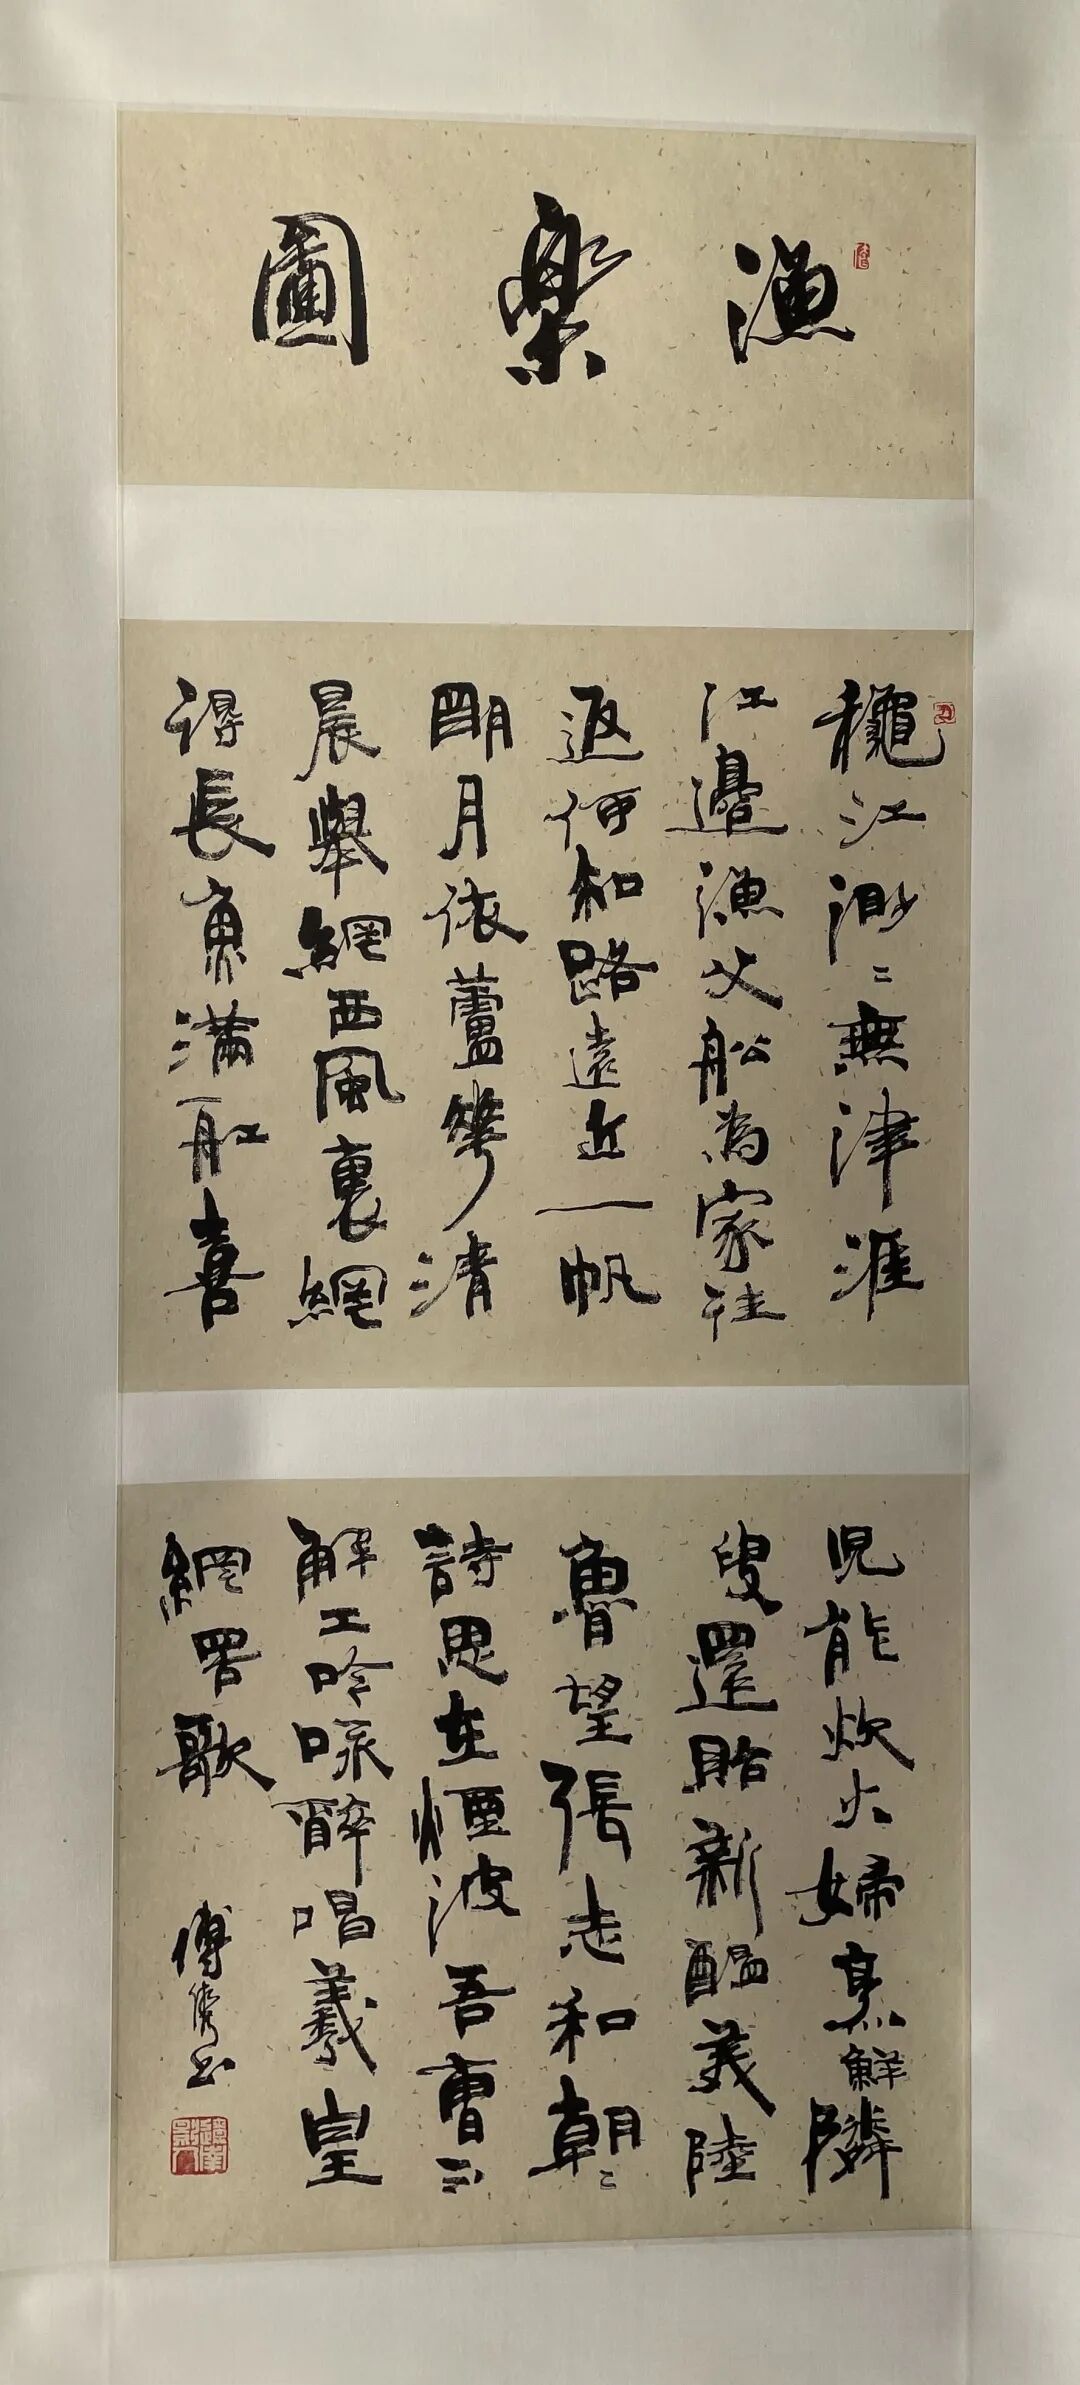 漁樂圖
穐江渺〻無津涯
江邊漁父船為家往
返何知路遠近一帆
朙月依蘆華清
晨舉網西風裏網
得長魚滿舡喜
児能炊火婦烹鮮隣
叟還貽新醞美陸
魯望張志和朝〻
詩思在煙波吾曹亦
解工吟咏醉唱羲皇
網罟歌
傅 書